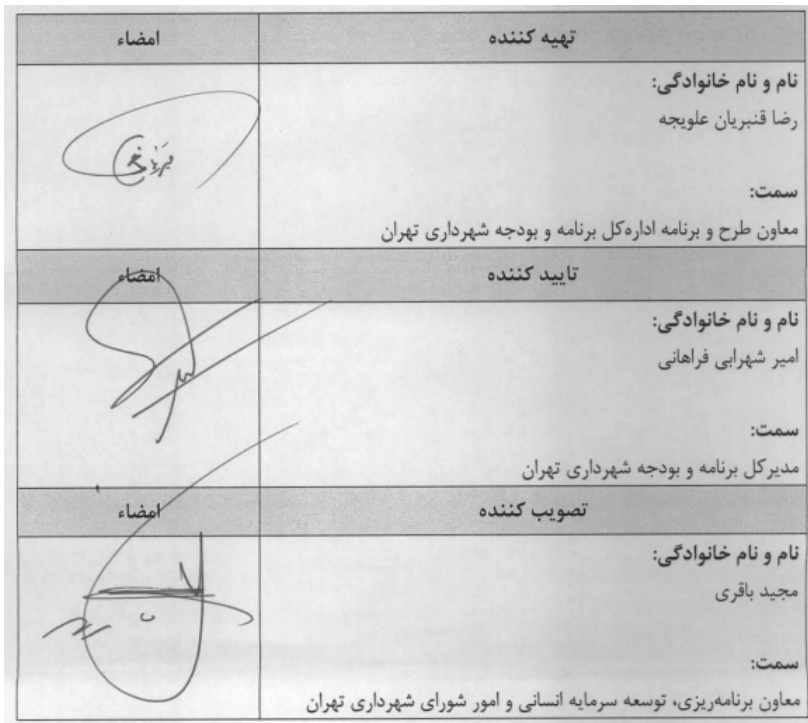 تهیه کننده
امضاء
نام و نام خانوادگی:
رضا قنبریان علویجه
سمت:
معاون طرح و برنامه اداره‌کل برنامه و بودجه شهرداری تهران
تایید کننده
امضاء
نام و نام خانوادگی:
امیر شهرابی فراهانی
سمت:
مدیرکل برنامه و بودجه شهرداری تهران
تصویب کننده
امضاء
نام و نام خانوادگی:
مجید باقری
سمت:
معاون برنامه‌ریزی، توسعه سرمایه انسانی و امور شورای شهرداری تهران